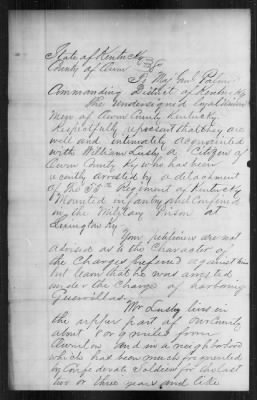 State of Kentucky
County of Owen
To Maj Genl Palmer
Commanding District of Kentucky
The undersigned Loyal Union
Men of Owen County Kentucky
respectfully represent that they are
well and intimately acquainted
with William Lusby a Citizen of
Owen County Ky who has been
recently arrested by a detachment
of the 30th Regiment of Kentucky
Mounted infantry and Confined
in the Military Prison at
Lexington Ky
Your petitioners are not
advised as to the Character of
the Charges prefered against him
but learn that he was arrested
under the Charge of harboring
Guerrillas.
Mr Lusby lives in
the upper part of our County
about 8 or 9 miles from
Owenton and in a neighborhood
which has been much frequented
by Confederate Soldiers for the last
two or three years and